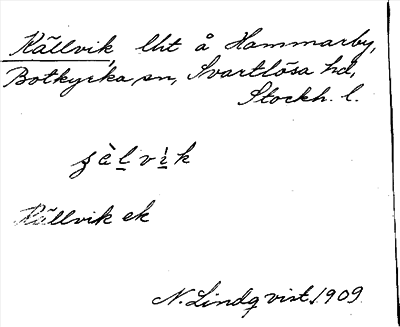 Källvik, lht å Hammarby,
Botkyrka sn, Svartlösa hd,
Stockh. l.
Källvik ek
N. Lindqvist. 1909